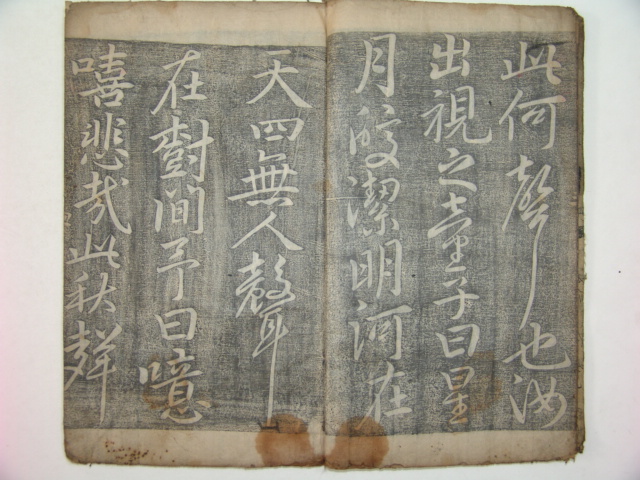 此何聲也汝
出視之童子曰星
月皎潔明河在
天四無人聲
在樹間予曰噫
嘻悲哉此秋聲